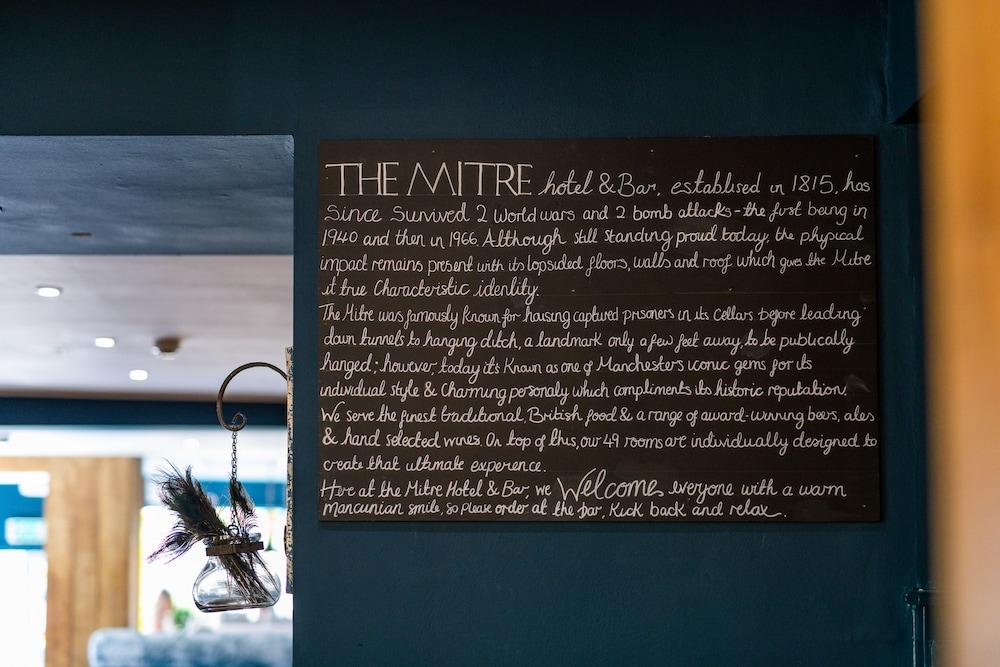 THE MITRE hotel & Bar, establised in 1815, has
Since Survived 2 World wars and 2 bomb attacks - the first being in
1940 and then in 1966. Although still standing proud today, the phyical
impact remains present with its lopsided floors, walls and roof which gives the Mitre
it true Characteristic identity.
The Mitre was famously known for housing captured prisoners in its Cellars before leading
down tunnels to hanging ditch, a landmark only a few feet away, to be publically
hanged; however, today it's Known as one of Manchesters iconic gems for its
individual style & Charming personaly which compliments its historic reputation.
We serve the finest traditional, British food & a range of award-winning beers, ales
& hand selected wines. On top of this, our 49 rooms are individually designed to
create that ultimate experence.
Here at the Mitre Hotel & Bar, we Welcome everyone with a warm
mancunian smile, so please order at the bar, Kick back and relax.